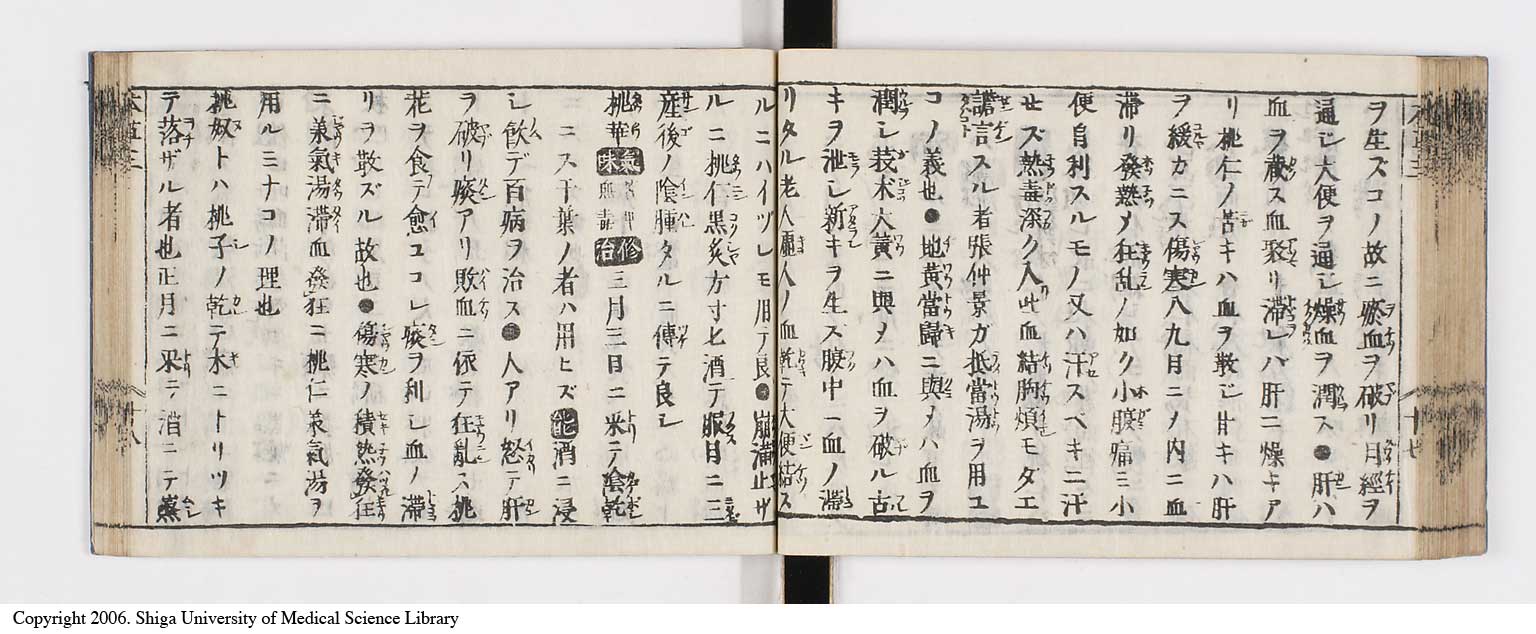 ヲ生ズコノ故ニ瘀血ヲ破リ月經ヲ
通ジ大便ヲ通ジ燥血ヲ潤ス●肝ハ
血ヲ藏ス血聚リ滯レバ肝ニ燥キア
リ桃仁ノ苦キハ血ヲ散ジ甘キハ肝
ヲ緩カニス傷寒八九月ニメ内ニ血
滯リ發熱メ狂乱ノ如ク小腹痛ミ小
便自利スルモノ又ハ汗スベキニ汗
せズ熱毒深ク入此血結胸煩モダエ
譫言スル者張仲景ガ抵當湯ヲ用エ
コノ義也●地黄當歸ニ與メハ血ヲ
潤シ莪朮大黄ニ與メハ血ヲ破ル古
キヲ泄シ新キヲ生ズ腹中ヘ血ノ滯
リタル老人虚人ノ血乾テ大便結ス
ルニハイヅレモ用テ良●崩漏止ザ
ルニ桃仁黒炙方寸匕酒テ服日ニ三
産後ノ陰腫タルニ傅テ良シ
桃華 氣味 無毒 修治 三月三日ニ采テ陰乾
ニス千葉ノ者ハ用ヒズ 能 酒ニ浸
シ飲デ百病ヲ治ス●人アリ怒テ肝
ヲ破リ痰アリ敗血ニ依テ狂亂ス桃
花ヲ食テ愈ユコレ痰ヲ利シ血ノ滯
リヲ散ズル故也●傷寒ノ積熱發狂
ニ兼氣湯滯血發狂ニ桃仁兼氣湯ヲ
用ルミナコノ理也
桃奴トハ桃子ノ乾テ木ニトリツキ
テ落ザル者也正月ニ采テ酒ニテ蒸
十八
Copyright 2006. Shiga University of Medical Science Library